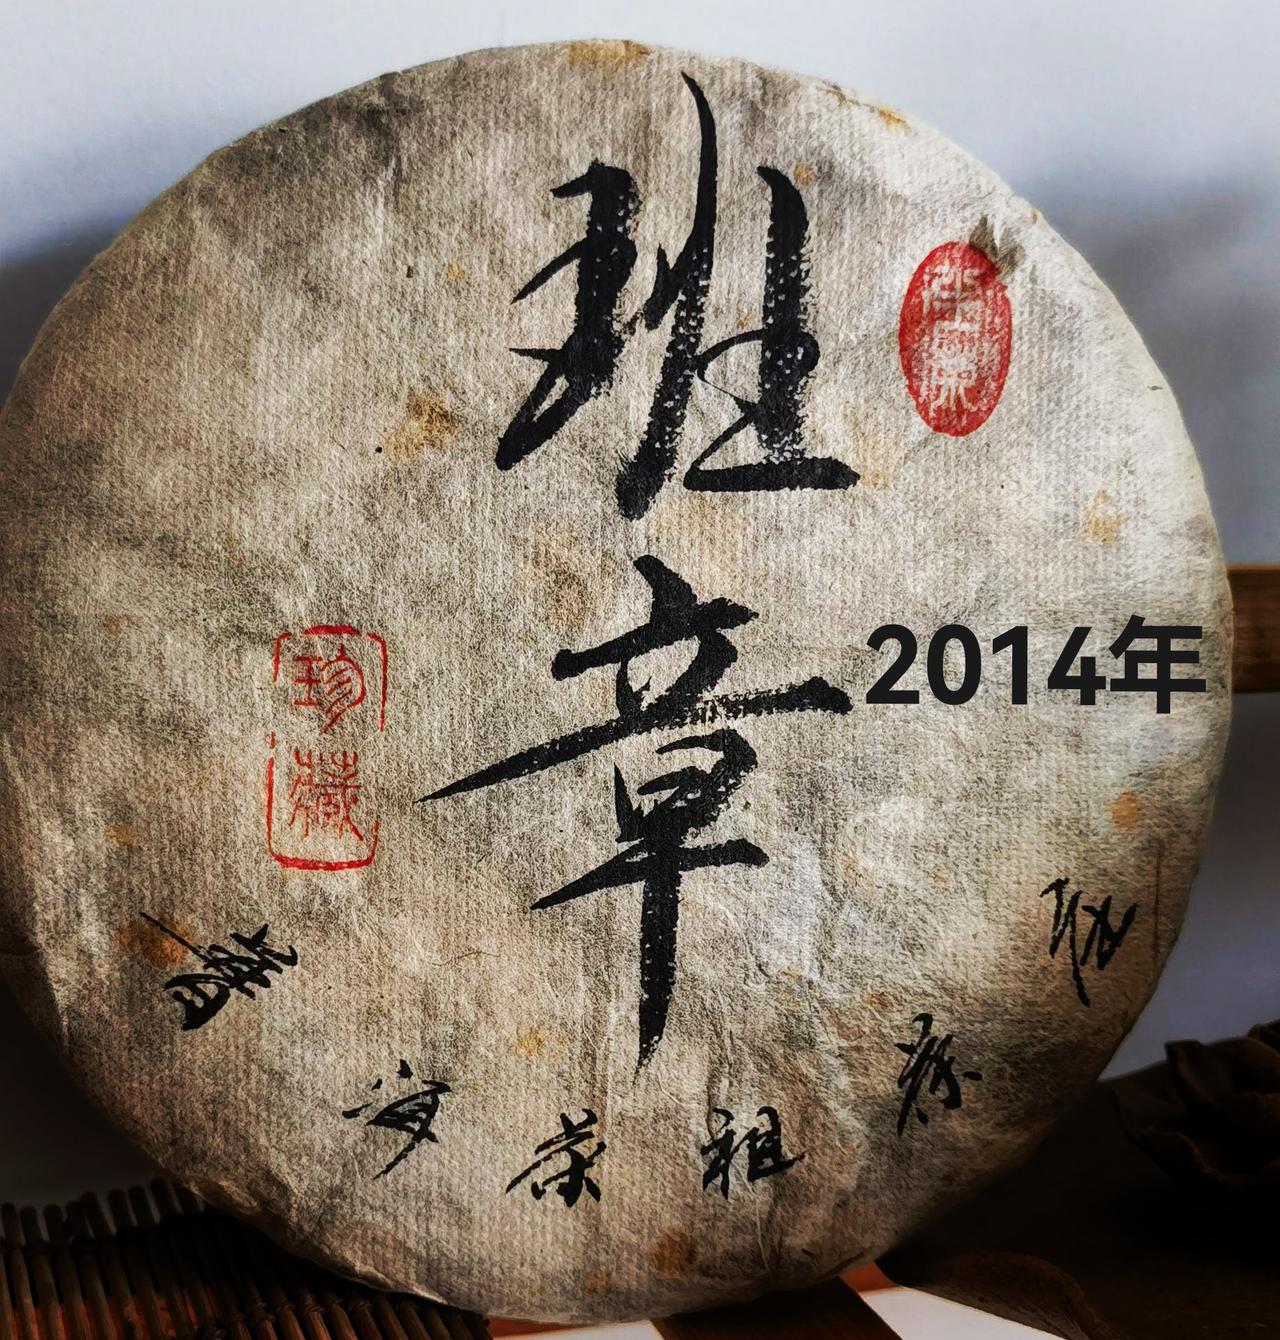 班章
2014年
珍藏
普洱茶祖